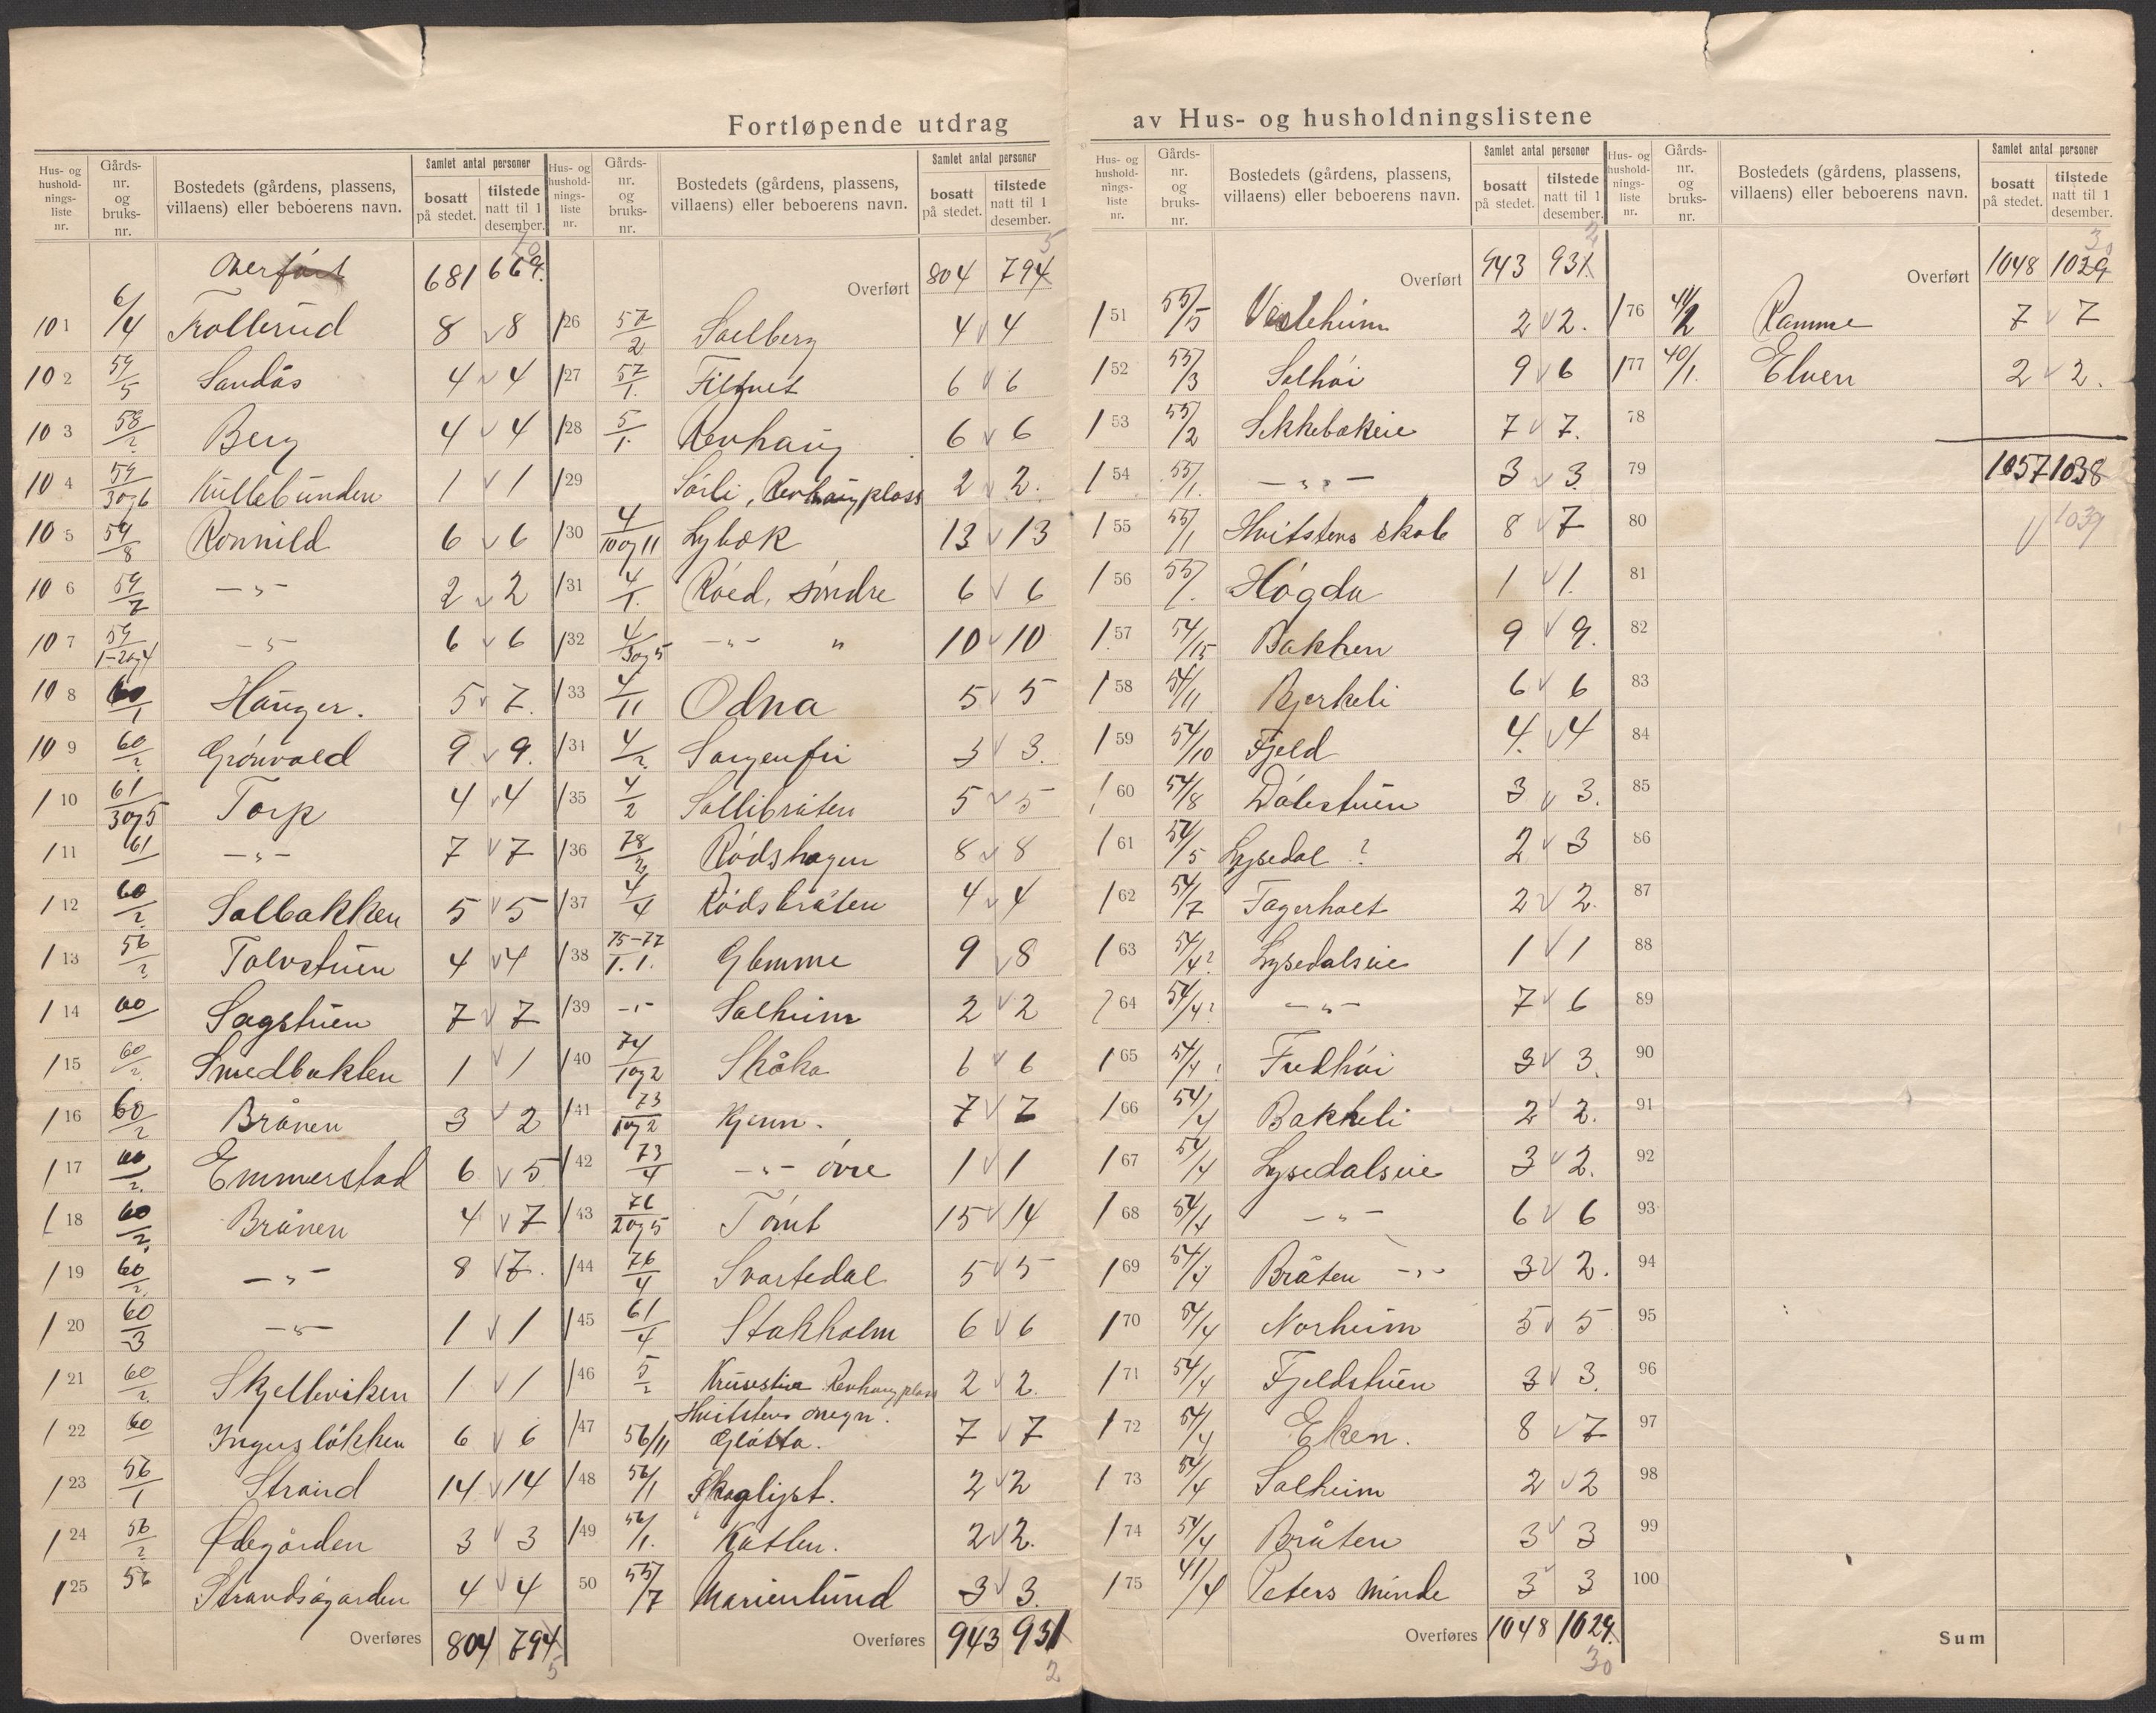 Fortløpende utdrag av Hus- og husholdningslistene
Hus- og husholdnings-liste nr. Gårds-nr. og bruks-nr. Bostedets (gårdens, plassens, villaens) eller beboerens navn. Samlet antal personer bosatt på stedet. tilstede natt til 1 desember.
Overført 681 669 70
101 6/4 Trollerud 8 v 8
102 59/5 Sandås 4 v 4
103 58/2 Berg 4 v 4
104 59/3og6 Kullebunden 1 v 1
105 59/8 Ronnild 6 v 6
106 59/7 -"- 2 v 2
107 59/1-2og4 -"- 6 v 6
108 60/1 Hauger. 5 v 7.
109 60/2 Grønvold 9 v 9.
110 61/3og5 Torp 4 v 4
111 61 -"- 7 v 7
112 60/2 Solbakken 5 v 5
113 56/2 Tolvstuen 4 v 4
114 60 Sagstuen 7 v 7
115 60/2 Smedbakken 1 v 1
116 60/2 Brånen 3 v 2
117 60/2 Emmerstad 6 v 5
118 60/2 Brånen 4 v 7
119 60/2 -"- 8 v 7.
120 60/3 -"- 1 v 1
121 60/2 Skjelleviken 1 v 1
122 60 Ingersløkken 6 v 6
123 56/1 Strand 14 v 14
124 56/2 Ødegården 3 v 3
125 56 Strandsøgarden 4 v 4
Overføres 804 794 5
Hus- og husholdnings-liste nr. Gårds-nr. og bruks-nr. Bostedets (gårdens, plassens, villaens) eller beboerens navn. Samlet antal personer bosatt på stedet. tilstede natt til 1 desember.
Overført 804 794 5
126 57/2 Solberg 4 v 4
127 57/1. Filtvet 6 v 6
128 5/1. Revhaug 6 v 6
129 Sørli, Revhaug plass 2 v 2.
130 4/10og11 Lybæk 13 v 13
131 4/1. Røed, søndre 6 v 6
132 4/3og5 -"- " 10 v 10
133 4/11 Odna 5 v 5
134 4/2. Sorgenfri 3 v 3.
135 4/2 Sollibråten 5 v 5
136 78/2 Rødshagen 8 v 8
137 4/4 Rødsbråten 4 v 4
138 75-77/1.1. Glemme 9 v 8
139 -"- Solheim 2 v 2
140 74/1og2 Skåka 6 v 6
141 73/1og2 Kjenn. 7 v 7
142 73/4 -"- øvre 1 v 1
143 76/2og5 Tømt 15 v 14
144 76/4 Svartedal 5 v 5
145 61/4 Stokholm 6 v 6
146 5/2 Revhaug plass 2 v 2.
Hvitstens omegn.
147 56/11 Gløtta. 7 v 7
148 56/1 Skoglyst. 2 v 2
149 56/1. Katlen. 2 v 2.
50 55/7 Marienlund 3 v 3.
Overføres 943 931 2
Hus- og husholdnings-liste nr. Gårds-nr. og bruks-nr. Bostedets (gårdens, plassens, villaens) eller beboerens navn. Samlet antal personer bosatt på stedet. tilstede natt til 1 desember.
Overført 943 931 2
151 55/5 Vesleheim 2 v 2.
152 55/3 Solhøi 9 v 6
153 55/2 Sekkebækeie 7 v 7.
154 55/1. -"- 3 v 3.
155 55/1 Hvitstens skole 8 v 7
156 55/. Høgda 1 v 1.
157 54/15 Bakken 9 v 9.
158 54/11 Bjerkeli 6 v 6
159 54/10 Fjeld 4. v 4
160 54/8 Dølestuen 3 v 3.
161 54/5 Lysedal ? 2 v 3
162 54/7 Fagerholt 2 v 2.
163 54/4? Lysedalseie 1 v 1
164 54/4? -"- 7 v 6
165 54/4? Fredhøi 3 v 3.
166 54/4 Bakkeli 2 v 2.
167 54/4 Lysedalseie 3 v 2.
168 54/4 -"- 6 v 6
169 54/4 Bråten -"- 3 v 2.
170 54/4 Norheim 5 v 5
171 54/4 Fjeldstuen 3 v 3.
172 54/4 Eken. 8 v 7
173 54/4 Solheim 2 v 2
174 54/4 Bråten 3 v 3
175 41/4 Peters minde 3 v 3
Overføres 1048 1029. 30
Hus- og husholdnings-liste nr. Gårds-nr. og bruks-nr. Bostedets (gårdens, plassens, villaens) eller beboerens navn. Samlet antal personer bosatt på stedet. tilstede natt til 1 desember.
Overført 1048 1029 30
176 41/2 Ramme 7 v 7
177 40/1. Elven 2 v 2.
78
79 1057 1038
80 v 1039
81
82
83
84
85
86
87
88
89
90
91
92
93
94
95
96
97
98
99
100
Sum